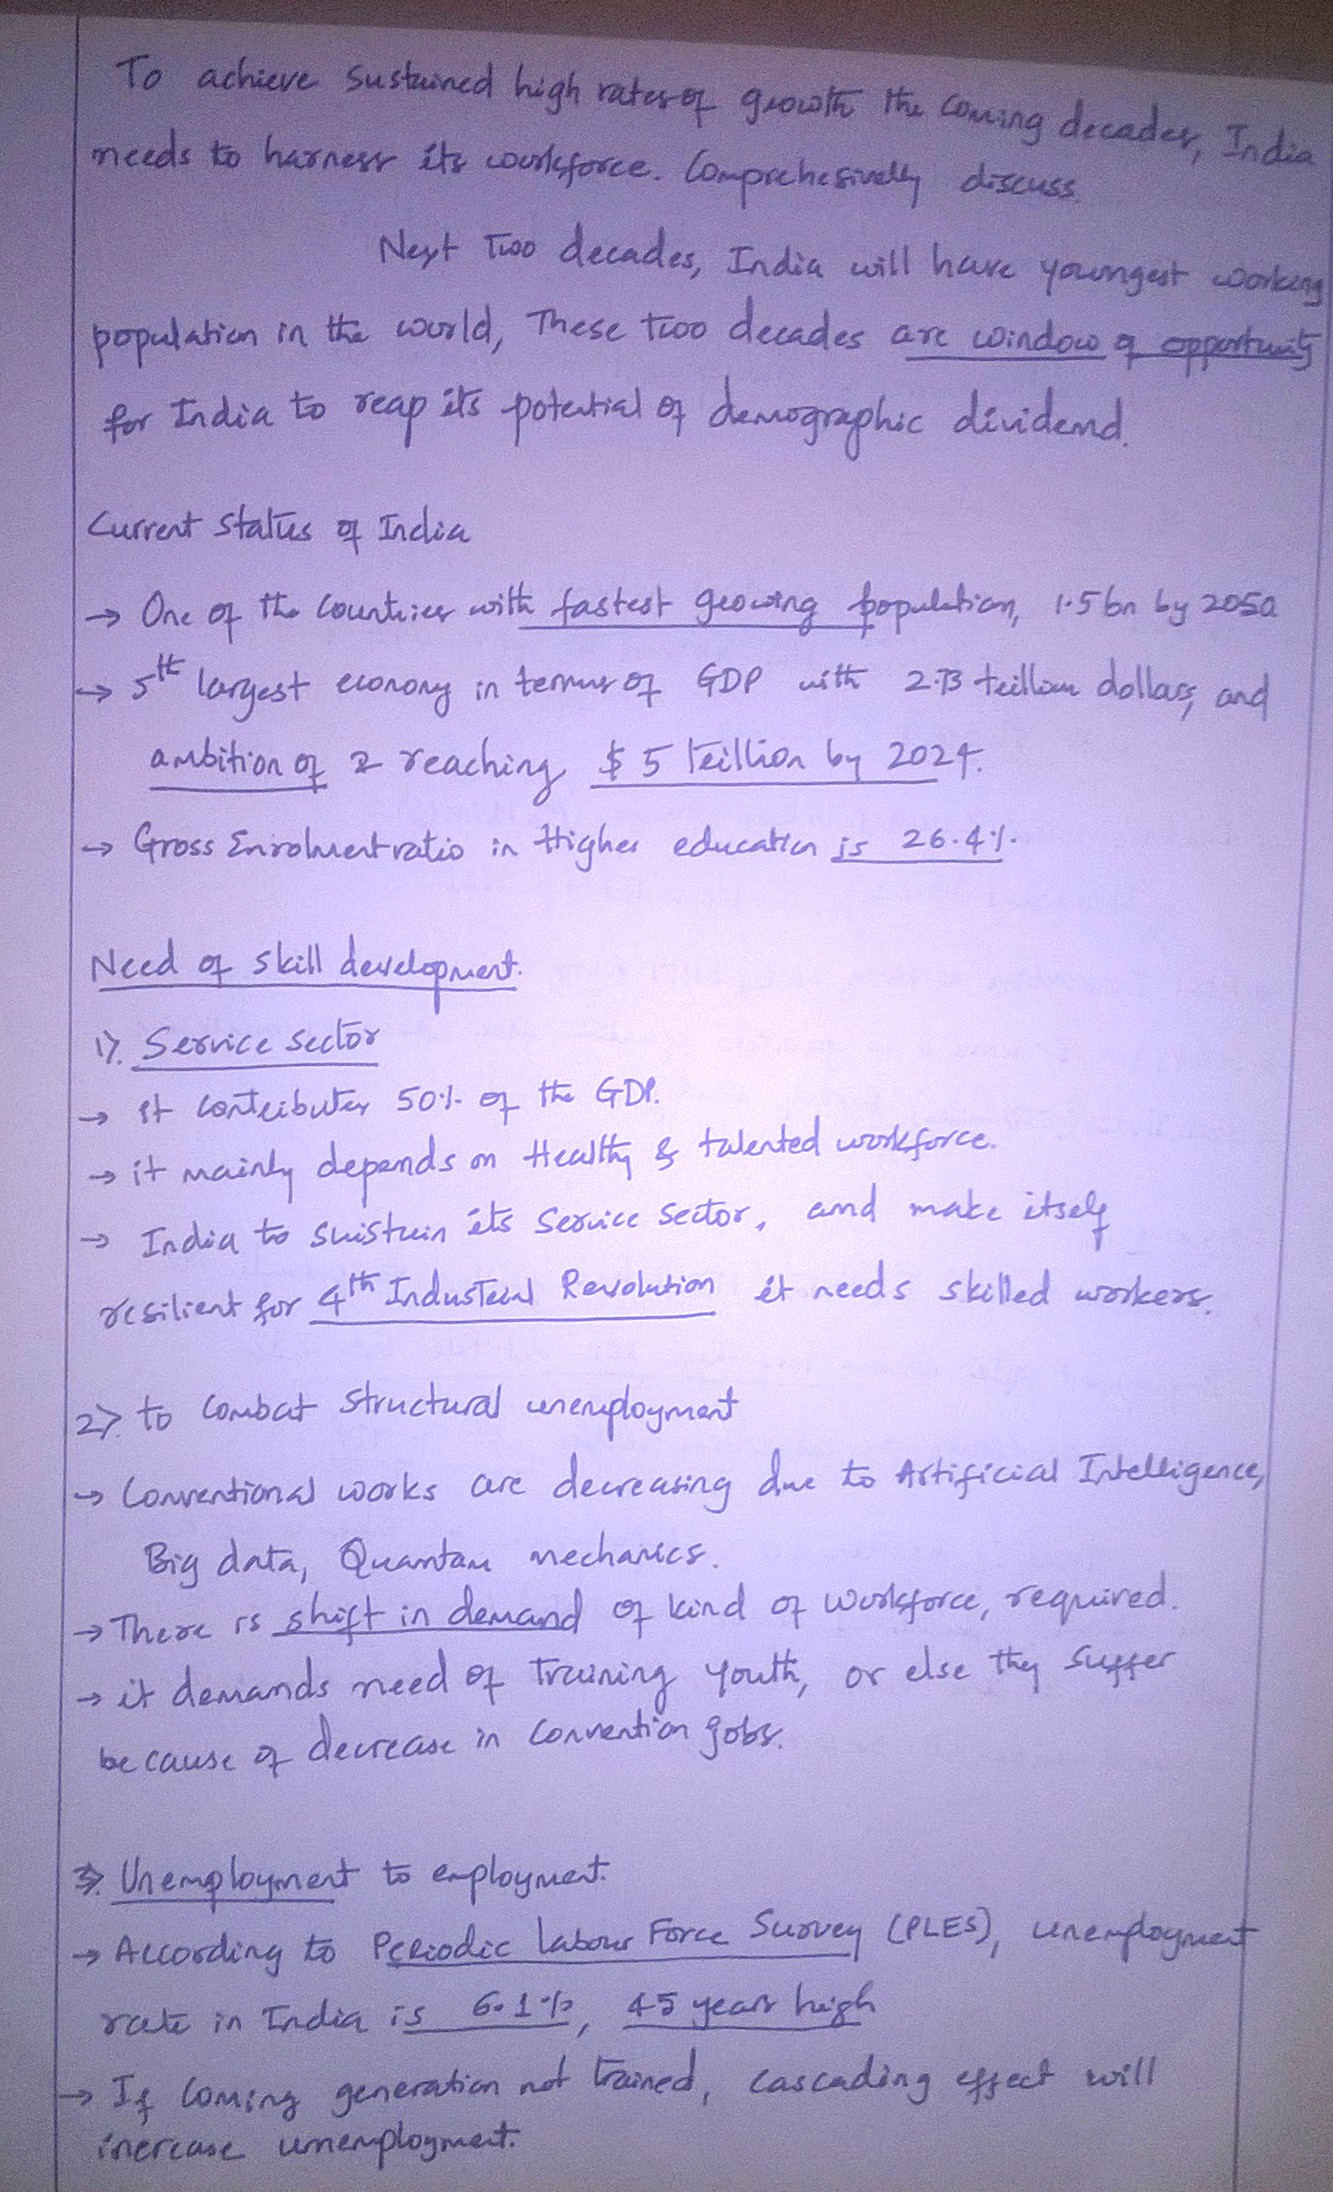 To achieve Sustained high rates of growth the coming decades, India
needs to harness its workforce. Comprehesively discuss.
Next Two decades, India will have youngest working
population in the world, These two decades are window of opportunity
for India to reap its potential of demographic dividend.
Current Status of India
→ One of the Countries with fastest growing population, 1.5 bn by 2050
→ 5th largest economy in terms of GDP with 2.73 trillion dollars, and
ambition of reaching $ 5 trillion by 2024.
→ Gross Enrolment ratio in Higher education is 26.4%.
Need of skill development.
1). Service sector
→ It contributes 50% of the GDP.
→ it mainly depends on Healthy & talented workforce.
→ India to suistain its Service Sector, and make itself
resilient for 4th Industrial Revolution it needs skilled workers.
2). to Combat Structural unemployment
→ Conventional works are decreasing due to Artificial Intelligence,
Big data, Quantam mechanics.
→ There is shift in demand of kind of workforce, required.
→ it demands need of training youth, or else they suffer
because of decrease in Convention jobs.
3). Unemployment to employment.
→ According to Periodic Labour Force Survey (PLFS), unemployment
rate in India is 6.1%, 45 year high
→ If Coming generation not trained, cascading effect will
increase unemployment.